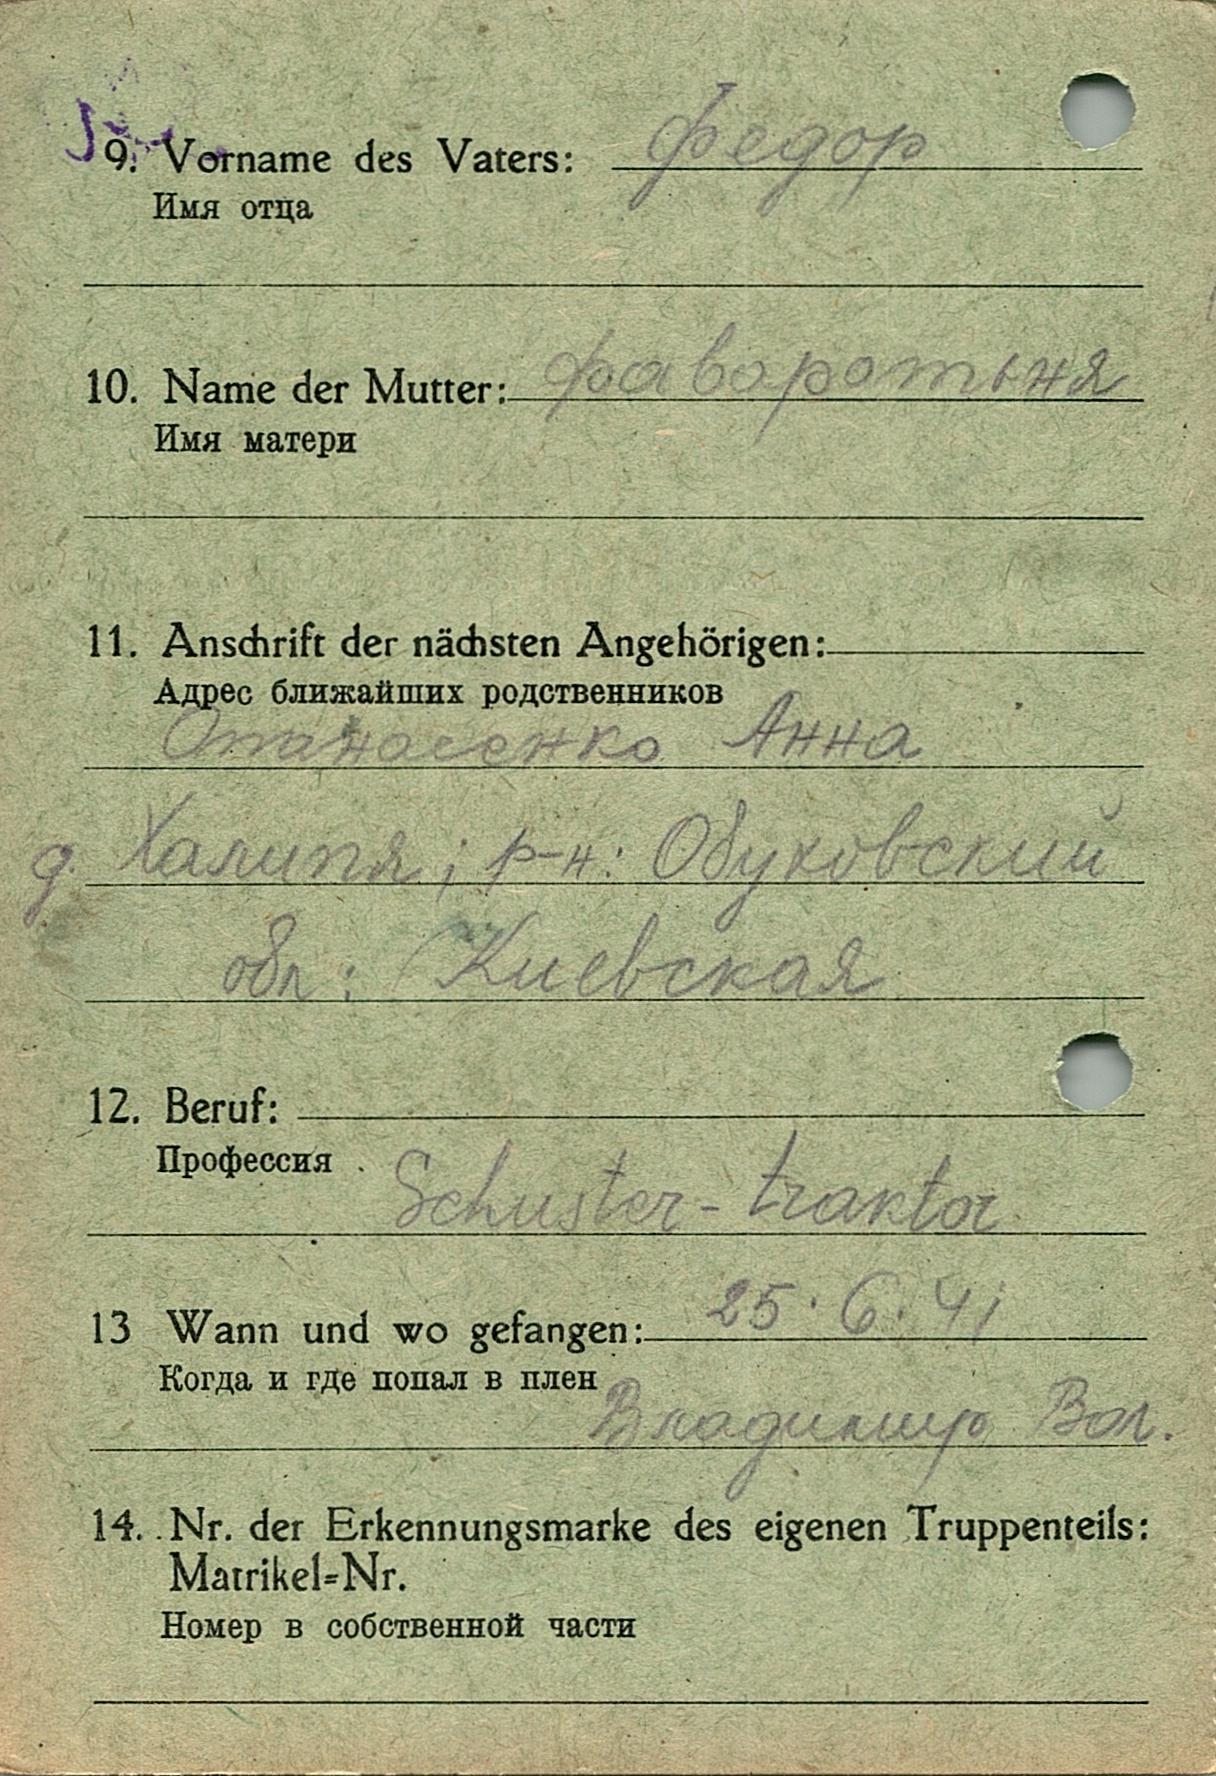 9. Vorname des Vaters: Федор
Имя отца
10. Name der Mutter: Фаворотьня
Имя матери
11. Anschrift der nächsten Angehörigen:
Адрес ближайших родственников
Опанасенко Анна
д. Халипя; р-н: Обуховский
обл: Киевская
12. Beruf:
Профессия
Schuster-traktor
13 Wann und wo gefangen: 25.6.41
Когда и где попал в плен
Владимир Вол.
14. Nr. der Erkennungsmarke des eigenen Truppenteils:
Matrikel-Nr.
Номер в собственной части